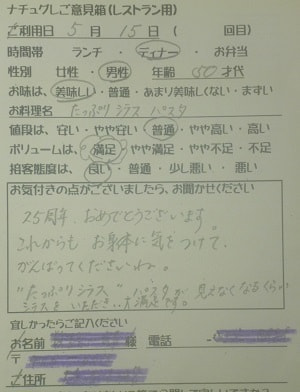 ナチュグしご意見箱(レストラン用)
ご利用日 5月 15日 ( 回目)
時間帯 ランチ ・ ディナー ・ お弁当
性別 女性 ・ 男性 年齢 50才代
お味は、美味しい・普通・あまり美味しくない・まずい
お料理名 たっぷりシラスパスタ
値段は、安い・やや安い・普通・やや高い・高い
ボリュームは、満足・やや満足・やや不足・不足
接客態度は、良い・普通・少し悪い・悪い
お気付きの点がございましたら、お聞かせください
25周年、おめでとうございます。
これからも お身体に気をつけて、
がんばってくださいね。
"たっぷりシラス" パスタが 見えなくなるくらい
シラスをいただき、大満足です。
宜しかったらご記入ください
お名前 様 電話 -
〒
ご住所